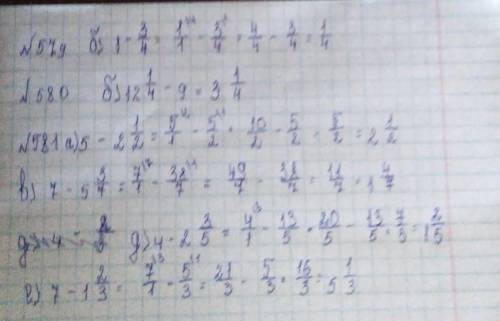 №579 б) 1 - 3/4 = 1/1 - 3/4 = 4/4 - 3/4 = 1/4
№580 б) 12 1/4 - 9 = 3 1/4
№581 а) 5 - 2 1/2 = 5/1 - 5/2 = 10/2 - 5/2 = 5/2 = 2 1/2
в) 7 - 5 3/7 = 7/1 - 38/7 = 49/7 - 38/7 = 11/7 = 1 4/7
д) 4 - 2 3/5 = 4/1 - 13/5 = 20/5 - 13/5 = 7/5 = 1 2/5
е) 7 - 1 2/3 = 7/1 - 5/3 = 21/3 - 5/3 = 16/3 = 5 1/3